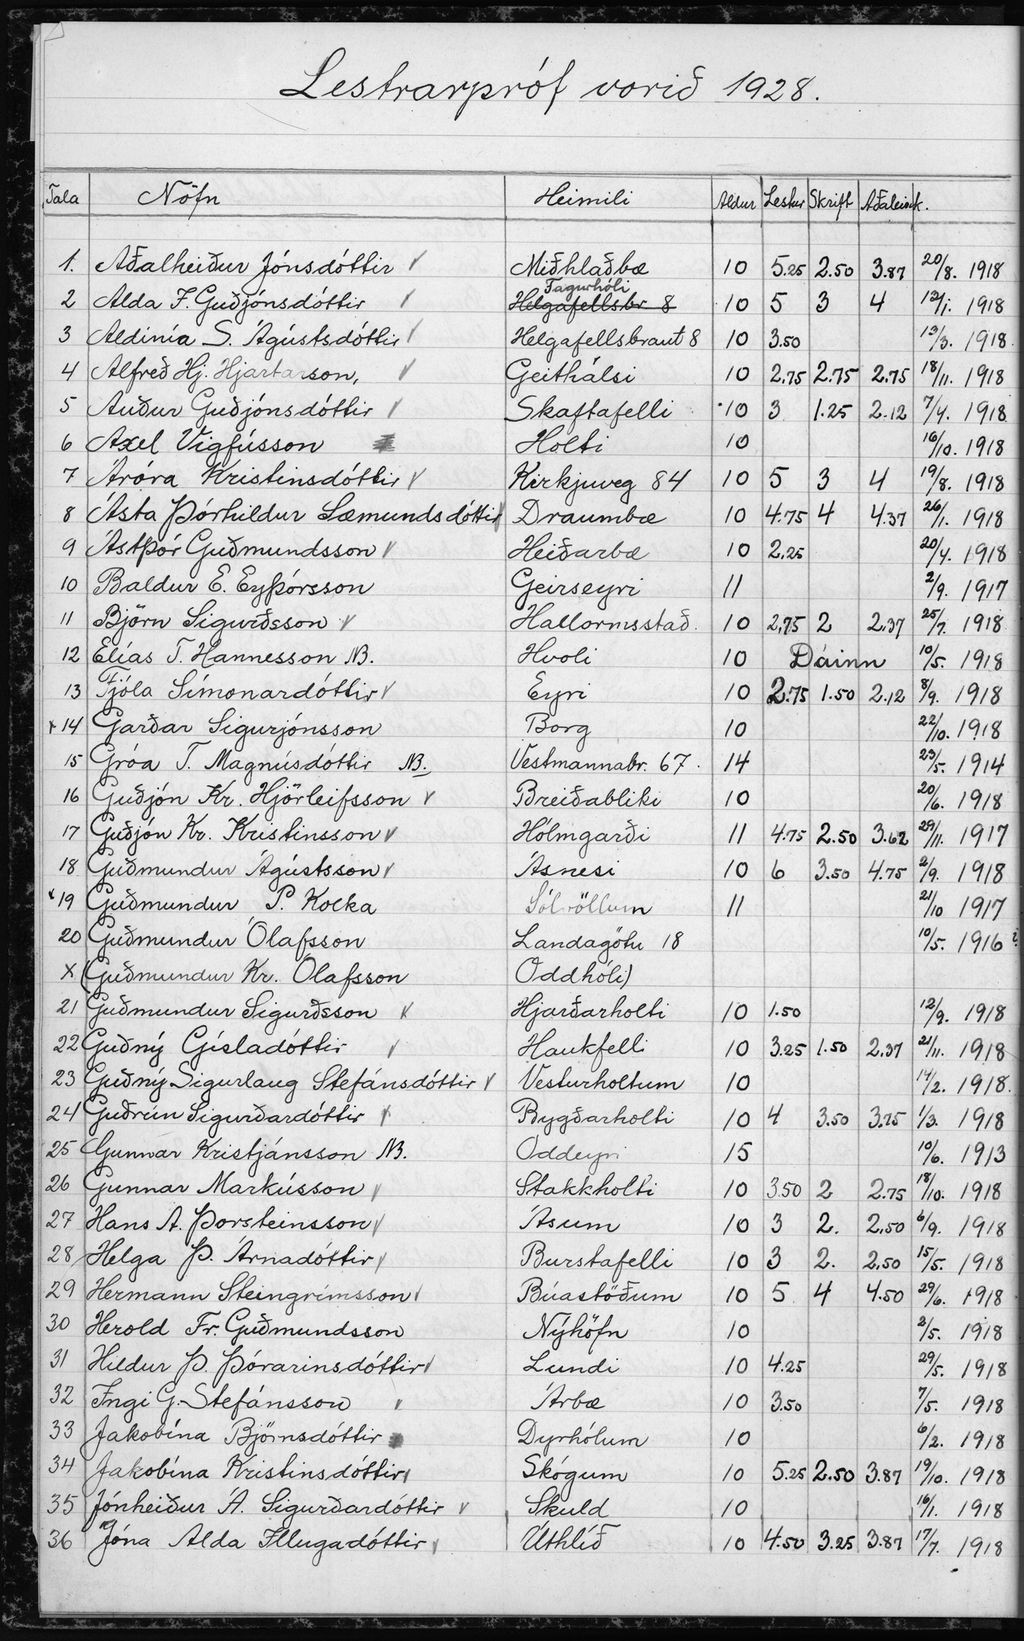 Lestrarpróf vorið 1928.
Tala Nöfn Heimili Aldur Lestur Skrift Aðaleink.
1. Aðalheiður Jónsdóttir √ Miðhlaðbæ 10 5.25 2.50 3.87 20/8. 1918
Fagurhóli
2 Alda F. Guðjónsdóttir √ Helgafellsbr 8 10 5 3 4 12/1. 1918
3 Aldinía S. Ágústsdóttir √ Helgafellsbraut 8 10 3.50 13/3. 1918
4 Alfreð Hj. Hjartarson, √ Geithálsi 10 2.75 2.75 2.75 18/11. 1918
5 Auður Guðjónsdóttir √ Skaftafelli 10 3 1.25 2.12 7/4. 1918
6 Axel Vigfússon Holti 10 16/10. 1918
7 Áróra Kristinsdóttir √ Kirkjuveg 84 10 5 3 4 19/8. 1918
8 Ásta Þórhildur Sæmundsdóttir √ Draumbæ 10 4.75 4 4.37 26/1. 1918
9 Ástþór Guðmundsson √ Heiðarbæ 10 2.25 20/4. 1918
10 Baldur E. Eyþórsson Geirseyri 11 2/9. 1917
11 Björn Sigurðsson √ Hallormsstað. 10 2.75 2 2.37 25/7. 1918
12 Elías T. Hannesson NB. Hvoli 10 Dáinn 10/5. 1918
13 Fjóla Símonardóttir √ Eyri 10 2.75 1.50 2.12 8/9. 1918
+14 Garðar Sigurjónsson Borg 10 22/10. 1918
15 Gróa T. Magnúsdóttir NB. Vestmannabr. 67. 14 23/5. 1914
16 Guðjón Kr. Hjörleifsson √ Breiðabliki 10 20/6. 1918
17 Guðjón Kr. Kristinsson √ Hólmgarði 11 4.75 2.50 3.62 29/11. 1917
18 Guðmundur Ágústsson √ Ásnesi 10 6 3.50 4.75 2/9. 1918
+19 Guðmundur P. Kolka 11 21/10 1917
20 Guðmundur Ólafsson Landagötu 18 10/5. 1916 ?
X (Guðmundur Kr. Ólafsson Oddhóli)
21 Guðmundur Sigurðsson √ Hjarðarholti 10 1.50 12/9. 1918
22 Guðný Gísladóttir √ Haukfelli 10 3.25 1.50 2.37 21/11. 1918
23 Guðný Sigurlaug Stefánsdóttir √ Vesturholtum 10 14/2. 1918.
24 Guðrún Sigurðardóttir √ Bygðarholti 10 4 3.50 3.75 1/3. 1918
25 Gunnar Kristjánsson NB. Oddeyri 15 10/6. 1913
26 Gunnar Markússon √ Stakkholti 10 3.50 2 2.75 18/10. 1918
27 Hans A. Þorsteinsson √ Ásum 10 3 2. 2.50 6/9. 1918
28 Helga Þ. Árnadóttir √ Burstafelli 10 3 2. 2.50 15/5. 1918
29 Hermann Steingrímsson √ Búastöðum 10 5 4 4.50 29/6. 1918
30 Herold Fr. Guðmundsson Nýhöfn 10 2/5. 1918
31 Hildur Þ. Þórarinsdóttir √ Lundi 10 4.25 29/5. 1918
32 Ingi G. Stefánsson √ Árbæ 10 3.50 7/5. 1918
33 Jakobína Björnsdóttir Dyrhólum 10 6/2. 1918
34 Jakobína Kristinsdóttir √ Skógum 10 5.25 2.50 3.87 19/10. 1918
35 Jónheiður Á. Sigurðardóttir √ Skuld 10 16/1. 1918
36 Jóna Alda Illugadóttir √ Úthlíð 10 4.50 3.25 3.87 17/7. 1918